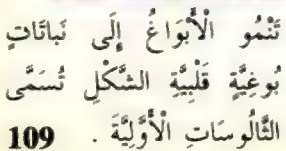 تَنْمُو الْأَبْوَاغُ إِلَى نَباتَاتٍ
بُوغِيَّةٍ قَلْبِيَّةِ الشَّكْلِ تُسَمَّى
الثَّالُوسَاتِ الْأَوَّلِيَّةَ . 109